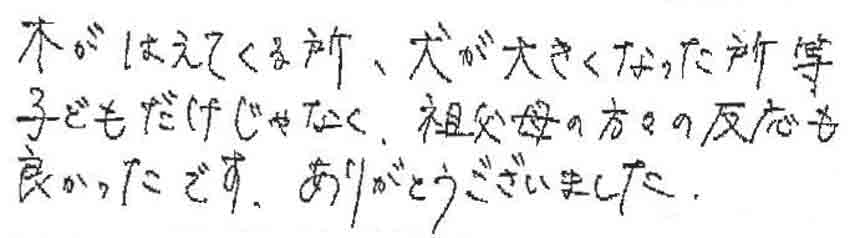 木がはえてくる所、犬が大きくなった所等
子どもだけじゃなく、祖父母の方々の反応も
良かったです。ありがとうございました。